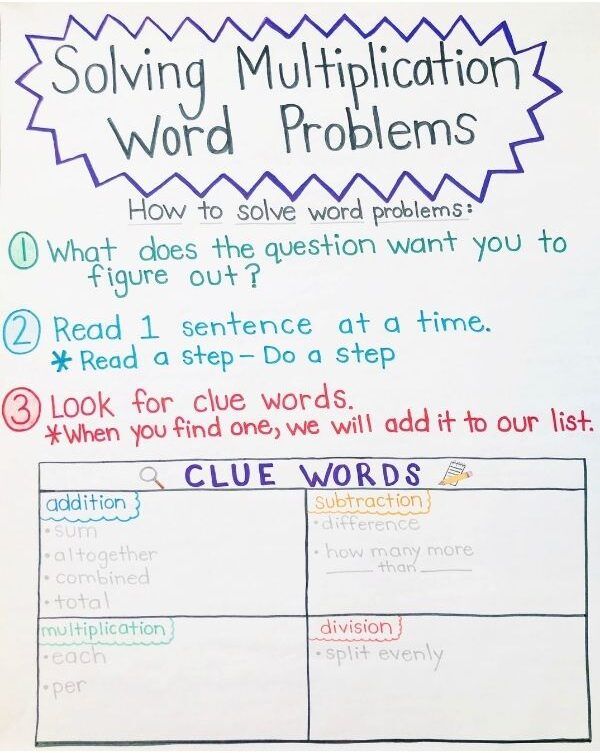 Solving Multiplication
Word Problems
How to solve word problems:
1 What does the question want you to
figure out?
2 Read 1 sentence at a time.
* Read a step - Do a step
3 Look for clue words.
*When you find one, we will add it to our list.
CLUE WORDS
addition
• sum
• altogether
• combined
• total
subtraction
• difference
• how many more
____ than ____
multiplication
• each
• per
division
• split evenly